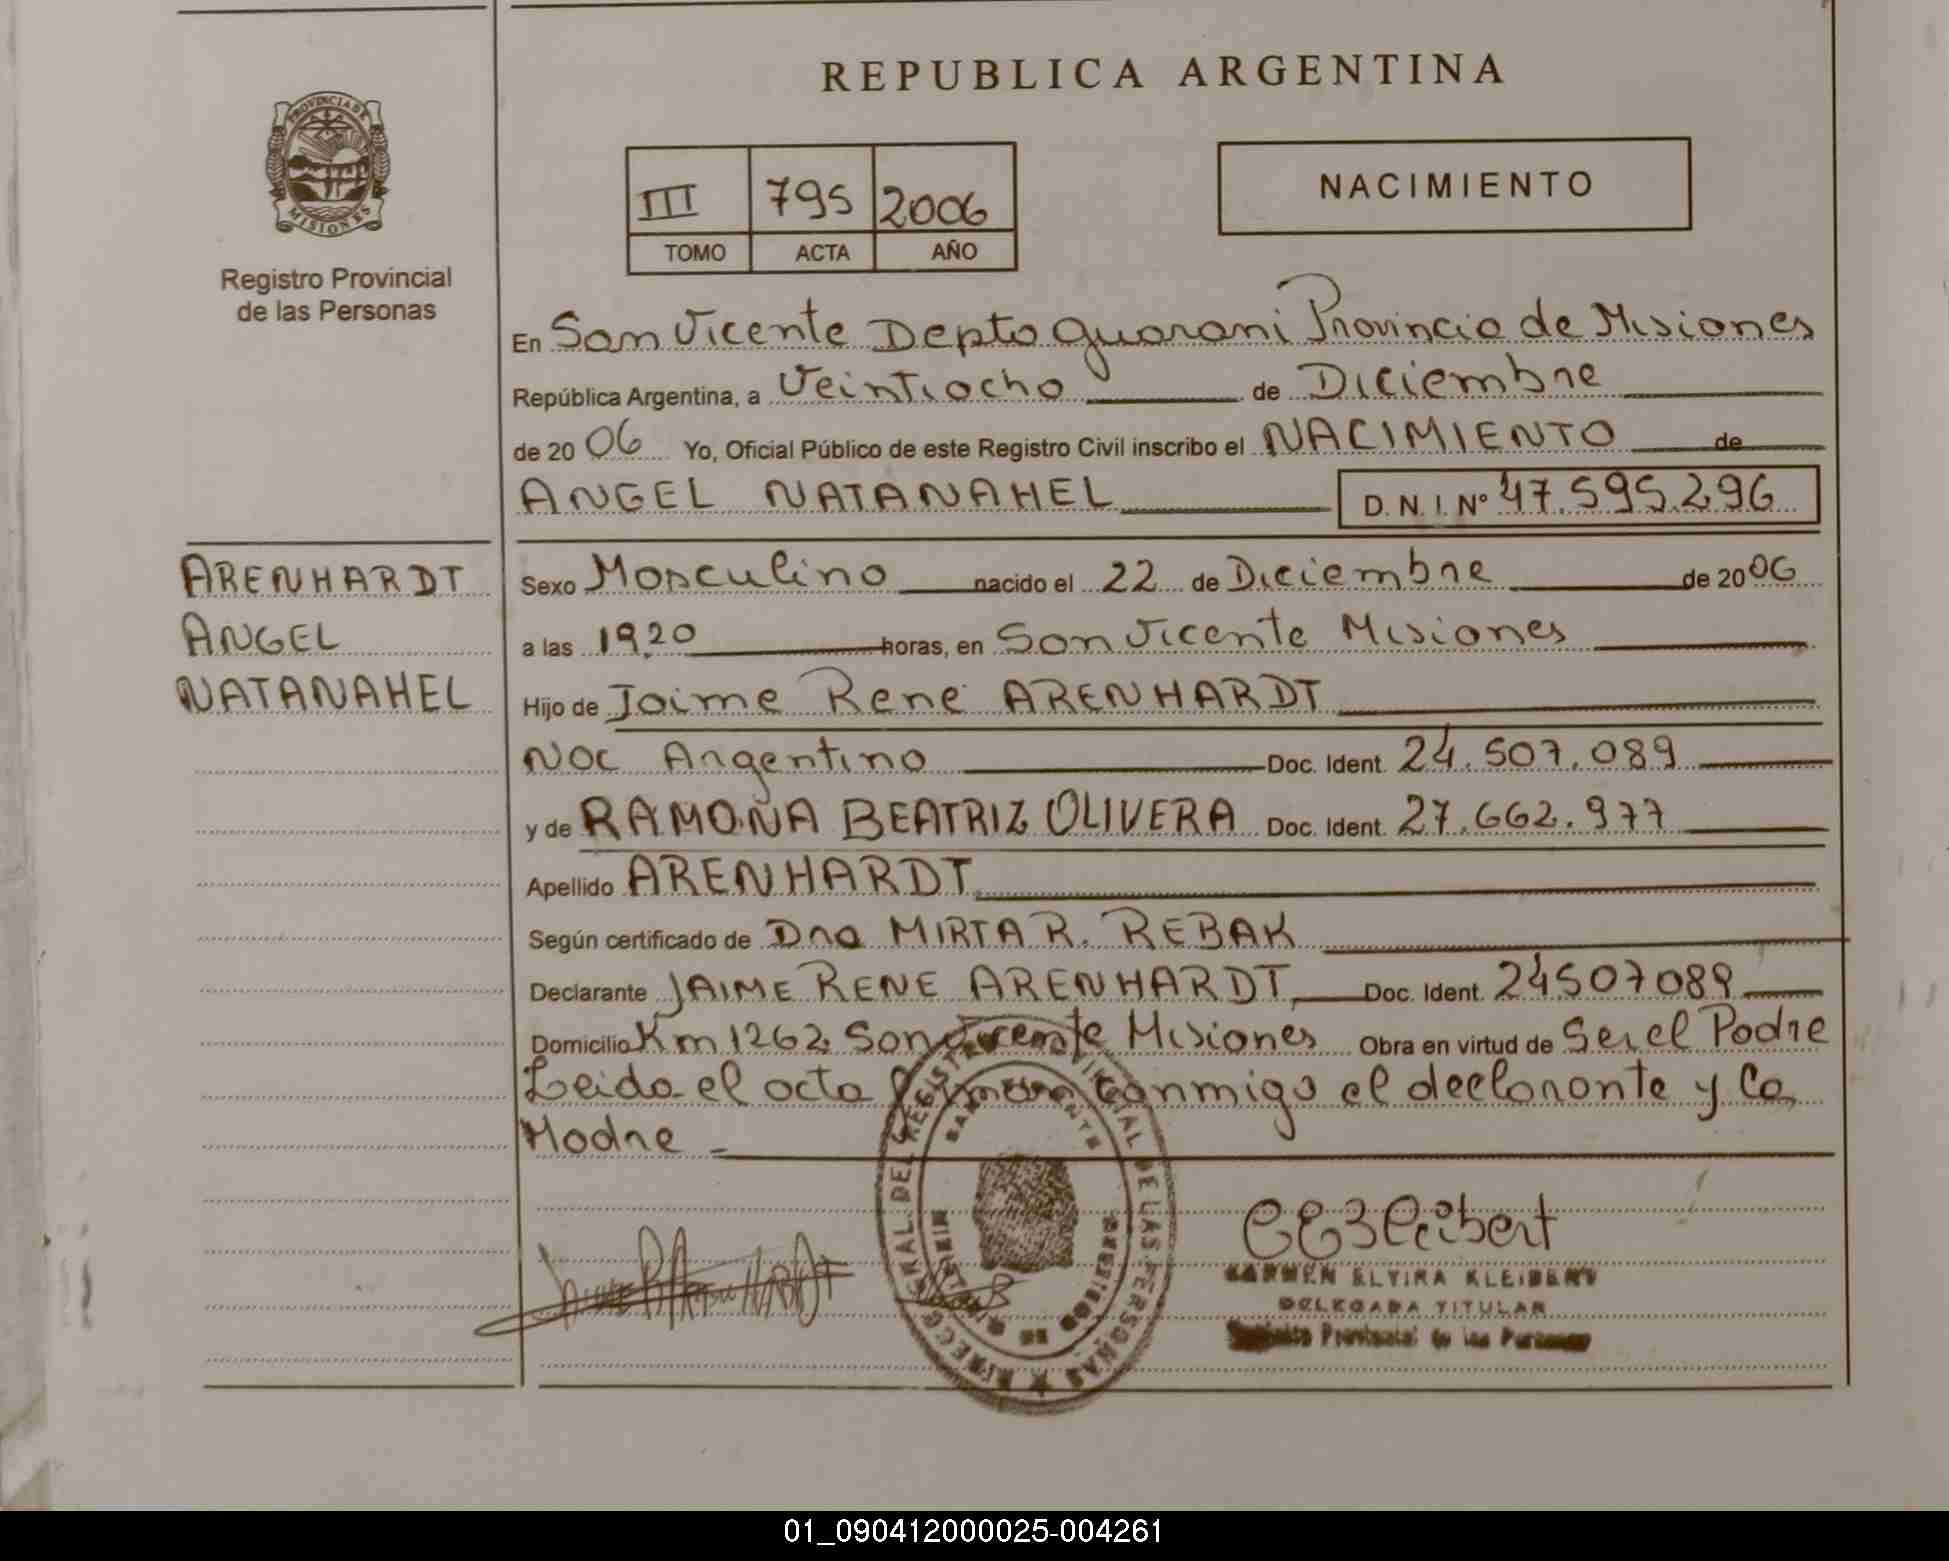 REPUBLICA ARGENTINA
PROVINCIA DE
MISIONES
Registro Provincial
de las Personas
III 795 2006
TOMO ACTA AÑO
NACIMIENTO
En San Vicente Depto Guarani Provincia de Misiones
República Argentina, a Veintiocho de Diciembre
de 2006 Yo, Oficial Público de este Registro Civil inscribo el NACIMIENTO de
ANGEL NATANAHEL D. N. I. Nº 47.595.296
ARENHARDT
ANGEL
NATANAHEL
Sexo Masculino nacido el 22 de Diciembre de 2006
a las 19,20 horas, en San Vicente Misiones
Hijo de Jaime Rene ARENHARDT
Nac Argentino Doc. Ident. 24.507.089
y de RAMONA BEATRIZ OLIVERA Doc. Ident. 27.662.977
Apellido ARENHARDT
Según certificado de Dra MIRTA R. REBAK
Declarante JAIME RENE ARENHARDT Doc. Ident. 24507089
Domicilio Km 1262 San Vicente Misiones Obra en virtud de Ser el Padre
Leida el acta firman conmigo el declarante y la
Madre
CARMEN ELVIRA KLEIBERT
DELEGADA TITULAR
Provincial de las Personas
01_090412000025-004261